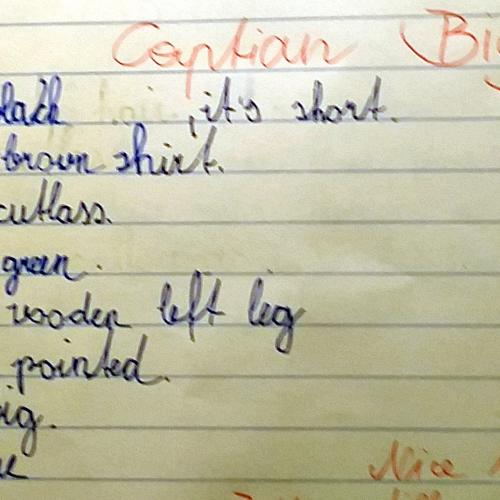 Caption Bi
black hair, it's short.
brown shirt.
cutlass.
green.
wooden left leg
pointed.
ig.
Nice